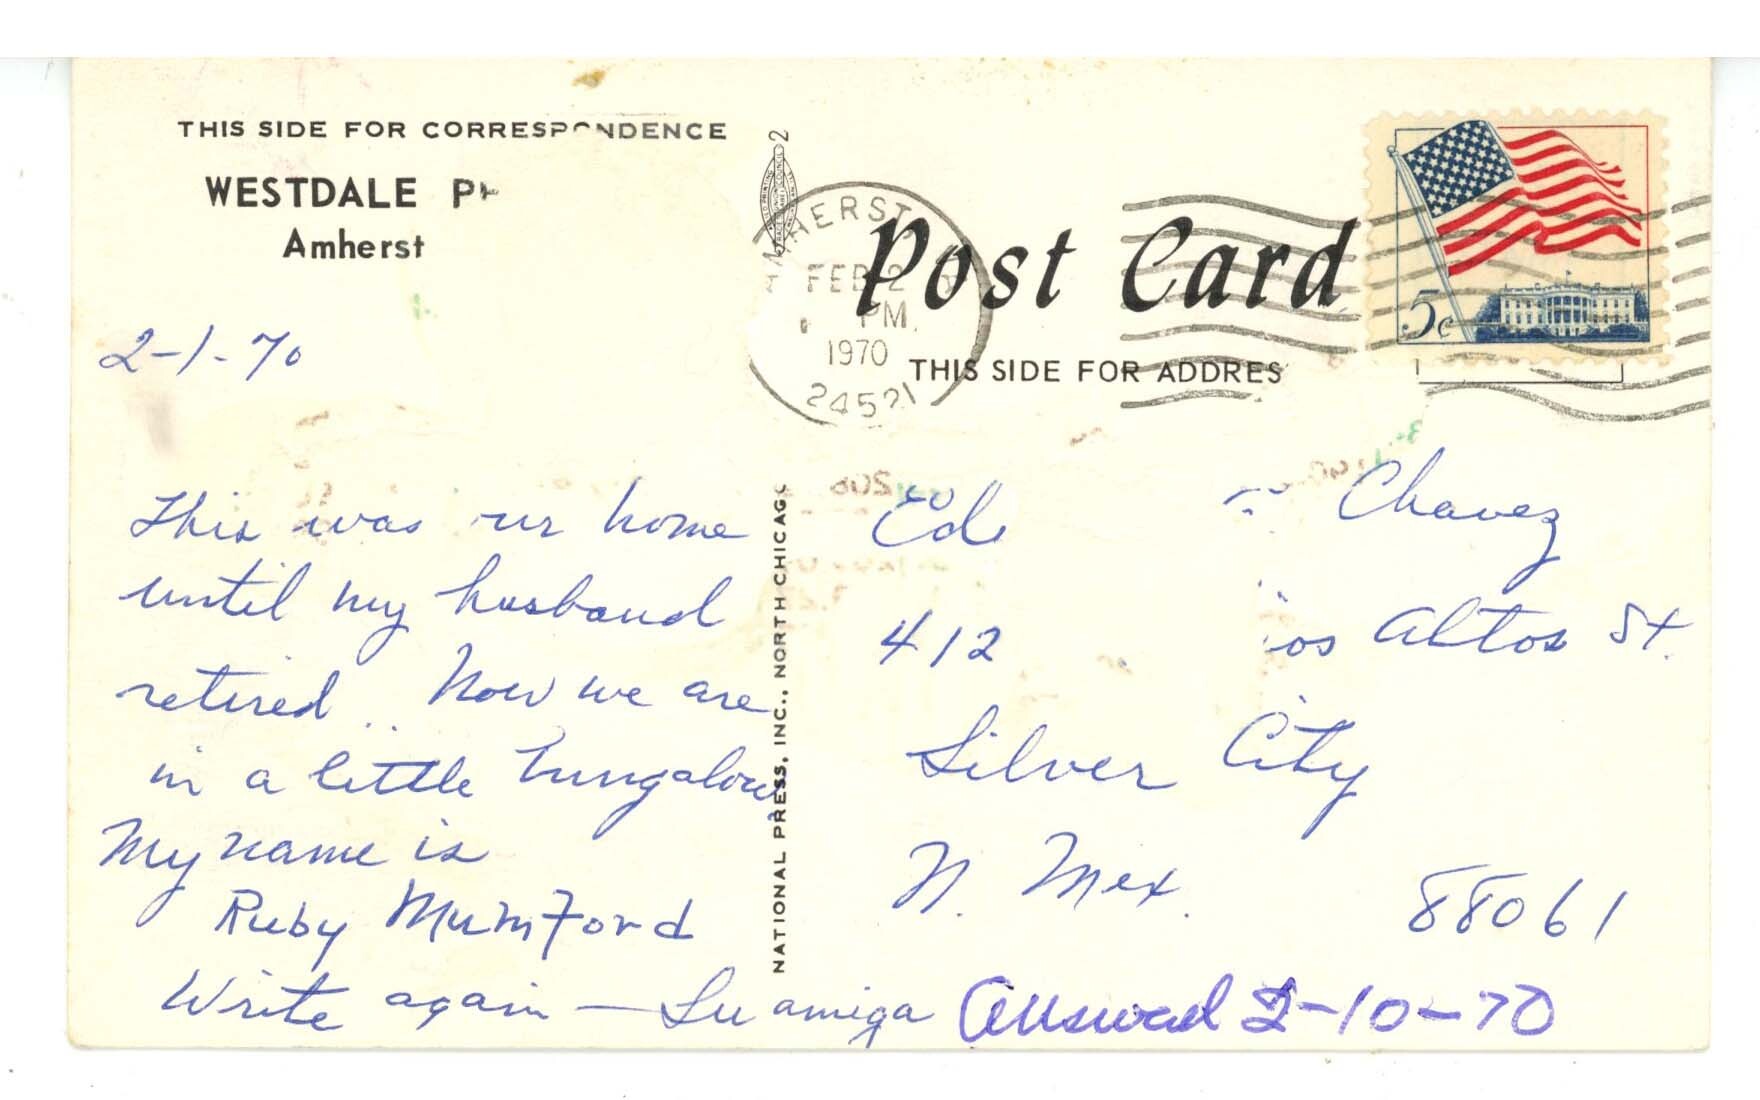 THIS SIDE FOR CORRESPONDENCE
WESTDALE PH
Amherst
2-1-70
This was our home
until my husband
retired.. Now we are
in a little bungalow
My name is
Ruby Mumford
Write again — Su amiga
NATIONAL PRESS, INC., NORTH CHICAGO
2
AMHERST
FEB 2
PM
1970
24521
Post Card
THIS SIDE FOR ADDRES
5c
Ed Chavez
412 os Altos St.
Silver City
N. Mex. 88061
Answered 2-10-70